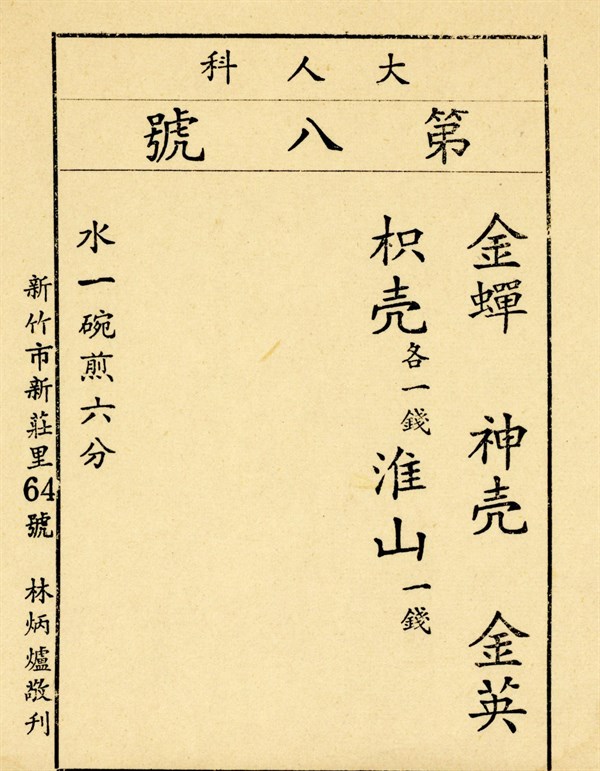 大人科
第八號
金蟬 神壳 金英
枳壳各一錢 淮山一錢
水一碗煎六分
新竹市新莊里64號 林炳爐敬刋